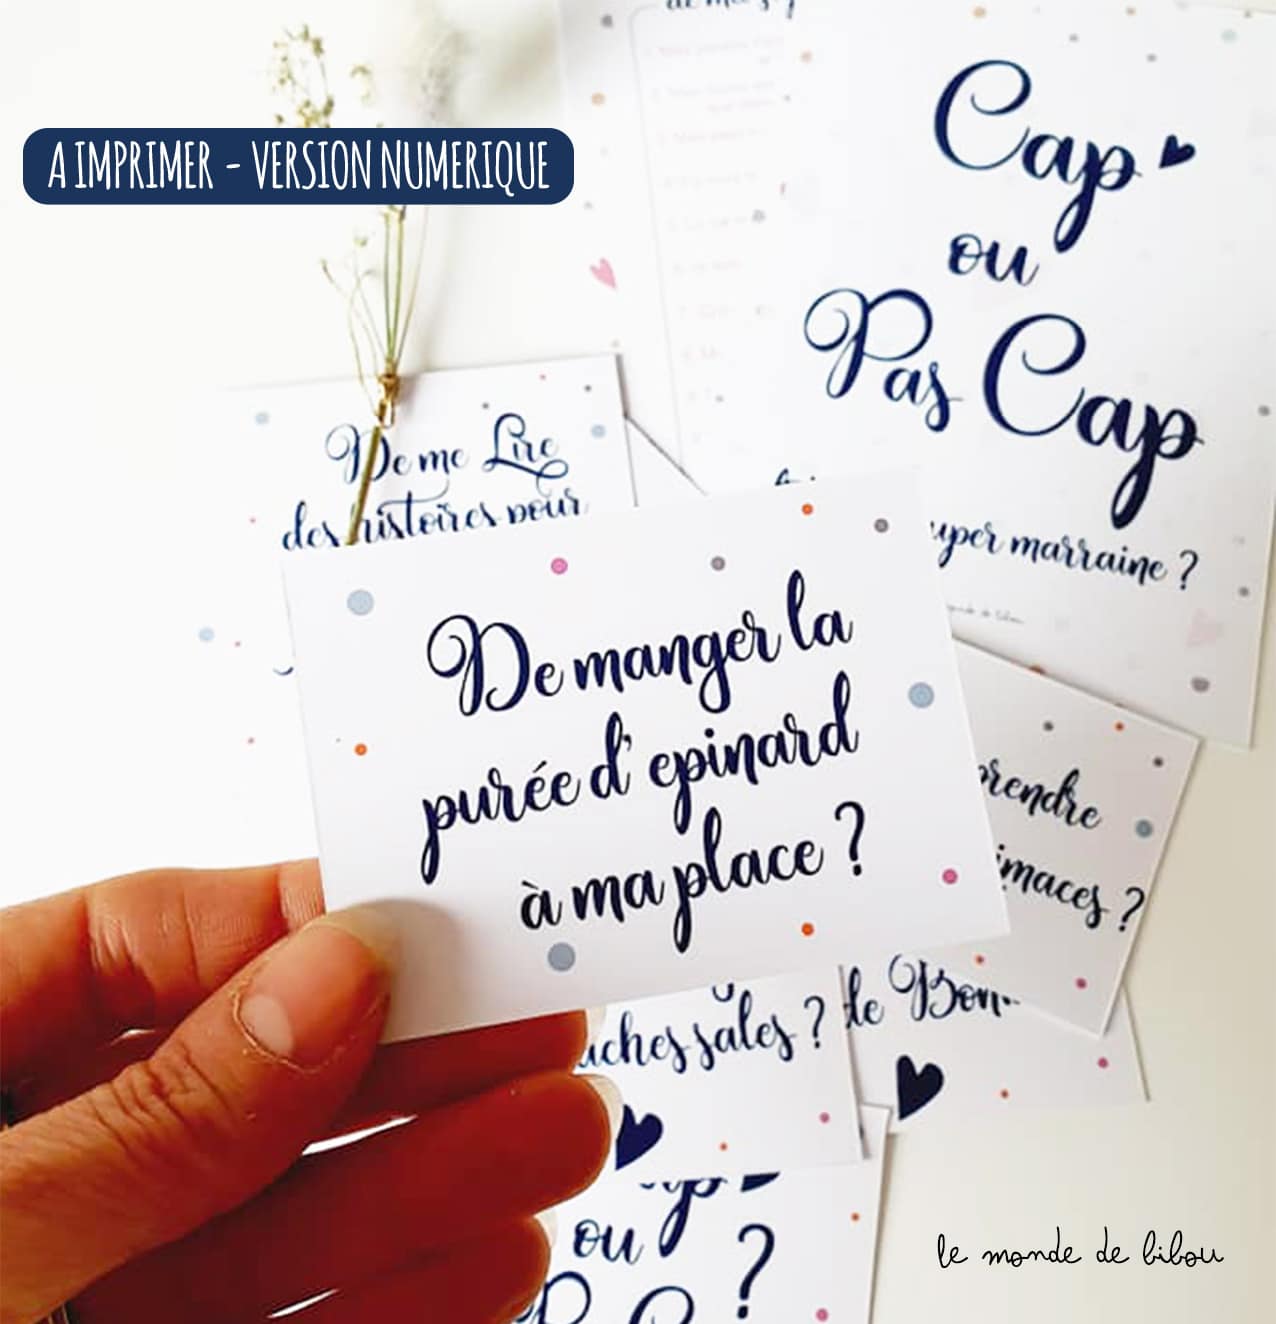 A IMPRIMER - VERSION NUMERIQUE
Cap
ou
Pas Cap
uper marraine ?
De me Lire
des histoires pour
De manger la
purée d' epinard
à ma place ?
rendre
imaces ?
uches sales ?
de Bon
ou
?
le monde de bibou